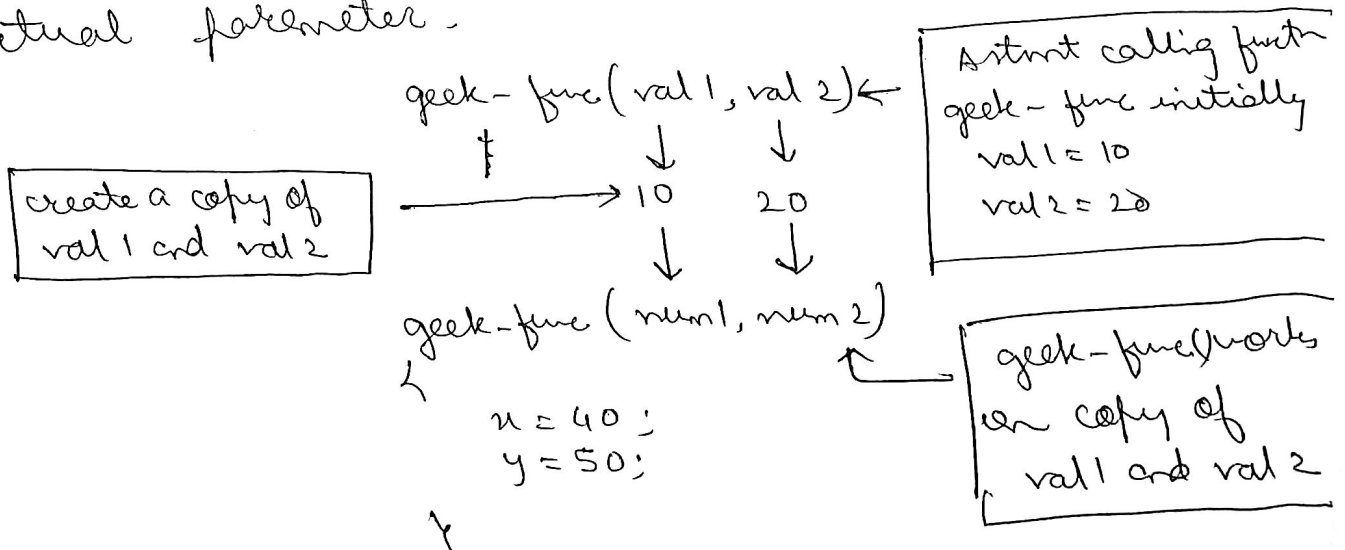 tual parameter.
geek-func(val 1, val 2)
calling
geek-func initially
val 1 = 10
val 2 = 20
create a copy of
val 1 and val 2
10 20
geek-func (num1, num 2)
{
x = 40;
y = 50;
}
geek-func() works
on copy of
val 1 and val 2